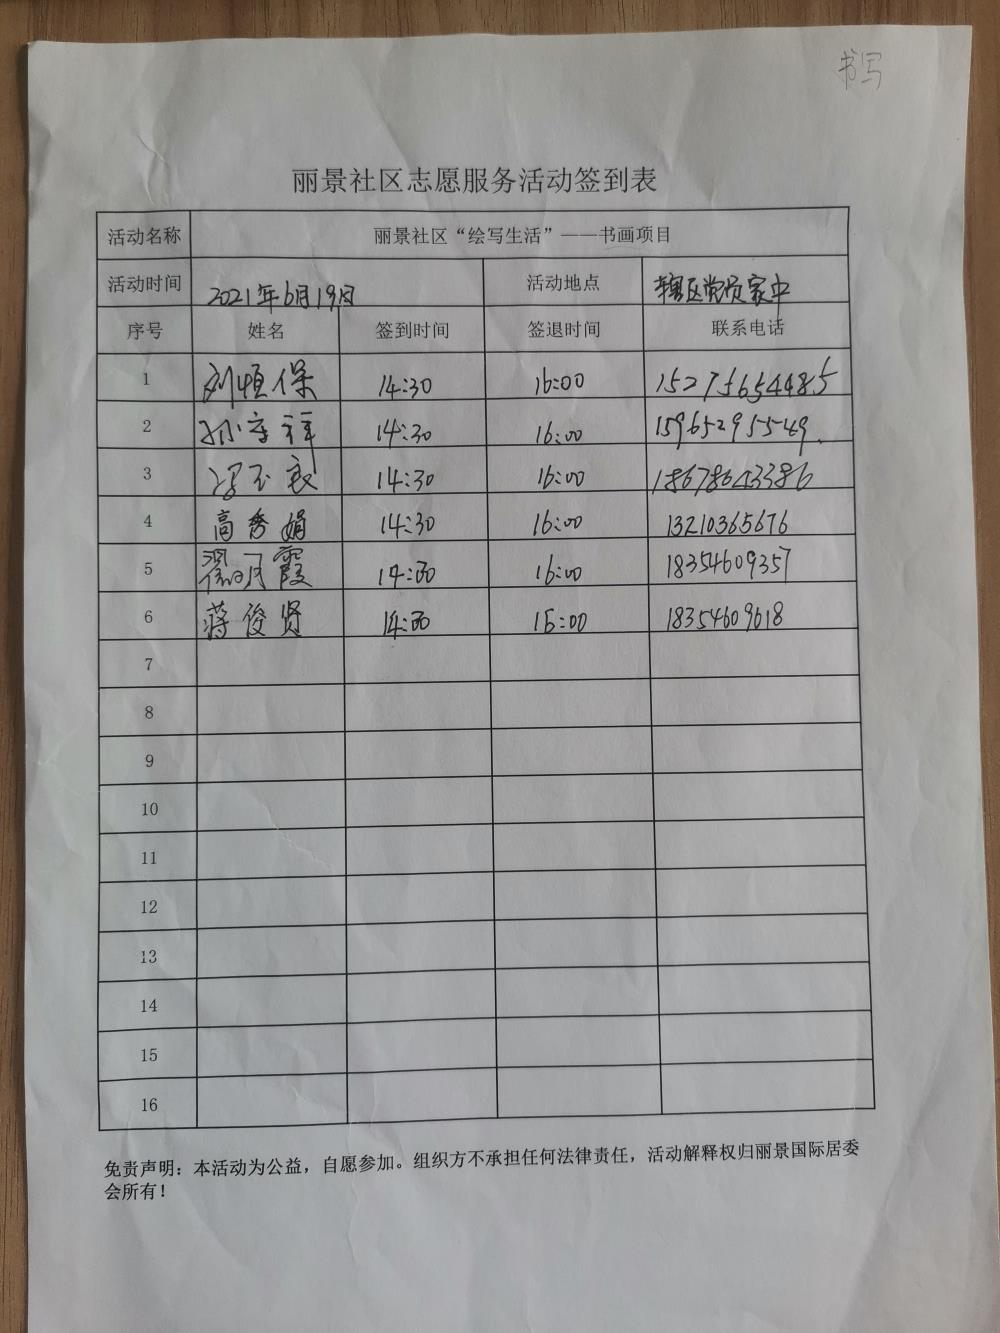 书写
丽景社区志愿服务活动签到表
活动名称 丽景社区“绘写生活”——书画项目
活动时间 2021年6月19日 活动地点 辖区党员家中
序号 姓名 签到时间 签退时间 联系电话
1 刘恒保 14:30 16:00 15275654485
2 孙守祥 14:30 16:00 15965295549
3 冯玉良 14:30 16:00 18678643386
4 高秀娟 14:30 16:00 13210365676
5 霞 14:30 16:00 18354609357
6 蒋俊贤 14:30 16:00 18354609618
7
8
9
10
11
12
13
14
15
16
免责声明：本活动为公益，自愿参加。组织方不承担任何法律责任，活动解释权归丽景国际居委
会所有！